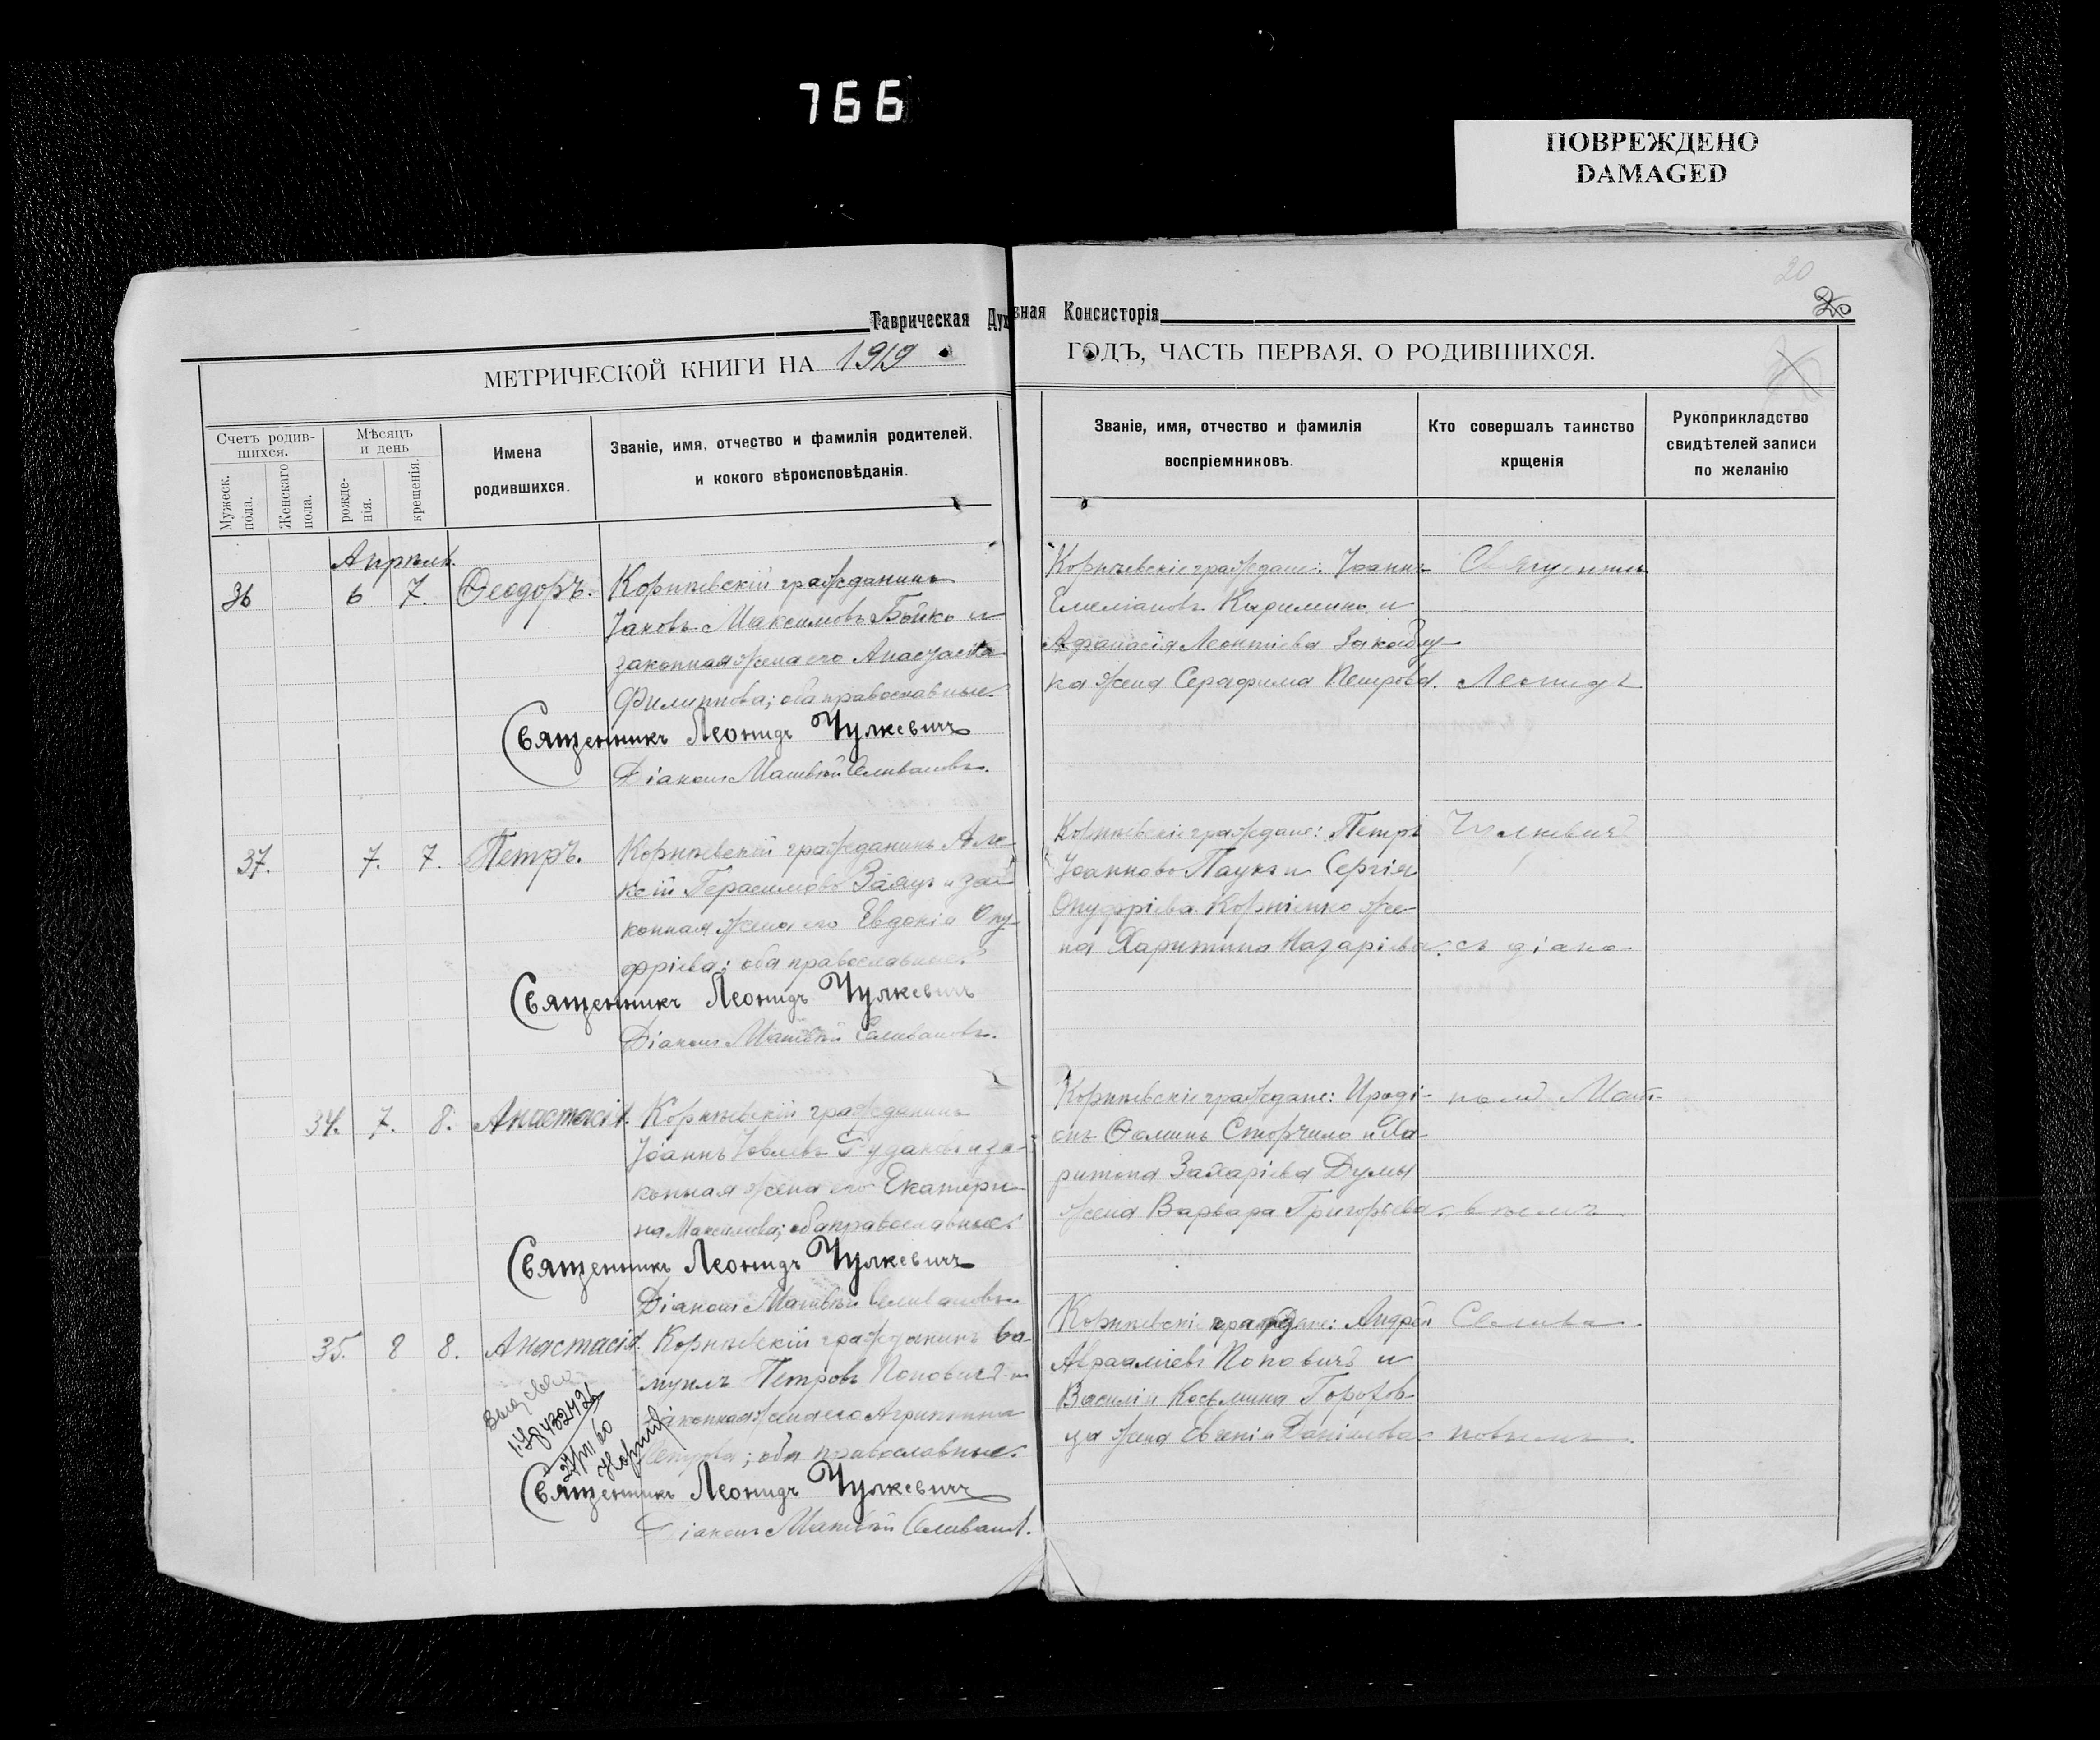 766
ПОВРЕЖДЕНО
DAMAGED
20
20
Таврическая Духовная Консисторія
МЕТРИЧЕСКОЙ КНИГИ НА 1919 ГОДЪ, ЧАСТЬ ПЕРВАЯ, О РОДИВШИХСЯ.
Счетъ родив-
шихся.
Мужеск. пола.
Женскаго пола.
Мѣсяцъ
и день
рожде-
нія.
крещенія.
Имена
родившихся.
Званіе, имя, отчество и фамилія родителей,
и кокого вѣроисповѣданія.
Званіе, имя, отчество и фамилія
воспріемниковъ.
Кто совершалъ таинство
крщенія
Рукоприкладство
свидѣтелей записи
по желанію
Апрѣль.
36 6 7. Ѳеодоръ. Корнѣевскій гражданинъ
Іаковъ Максимовъ Бойко и
законная жена его Анастасія
Филиппова; оба православные.
Священникъ Леонидъ Чулкевичъ
Діаконъ Матвѣй Селивановъ.
Корнѣевскіе граждане: Іоаннъ
Емеліановъ и
Афанасія Леонтіева
ка жена Серафима Петрова.
Священникъ
Леонидъ
37. 7. 7. Петръ. Корнѣевскій гражданинъ Але-
ксій Герасимовъ Заяцъ и за-
конная жена его Евдокія Ону-
фріева; оба православные.
Священникъ Леонидъ Чулкевичъ
Діаконъ Матвѣй Селивановъ.
Корнѣевскіе граждане: Петръ
Іоанновъ Паукъ и Сергія
Онуфріева Корніенко же-
на Харитина Назаріева.
Чулкевичъ
съ діако-
34. 7. 8. Анастасія. Корнѣевскій гражданинъ
Іоаннъ Рудаковъ и за-
конная жена его Екатери-
на Максимова; оба православные.
Священникъ Леонидъ Чулкевичъ
Діаконъ Матвѣй Селивановъ.
Корнѣевскіе граждане: Ироді-
онъ Ѳоминъ Сторчило и Ха-
ритона Захаріева Думы
жена Варвара Григорьева.
номъ Мат-
вѣемъ
35. 8 8. Анастасія. Корнѣевскій гражданинъ Са-
муилъ Петровъ Поповичъ и
законная жена его Агриппина
Петрова; оба православные.
Священникъ Леонидъ Чулкевичъ
Діаконъ Матвѣй Селивановъ.
Корнѣевскіе граждане: Андрей
Авраамiевъ Поповичъ и
Василія Косьмина
жена Евгенія Данилова.
Селива-
новымъ.